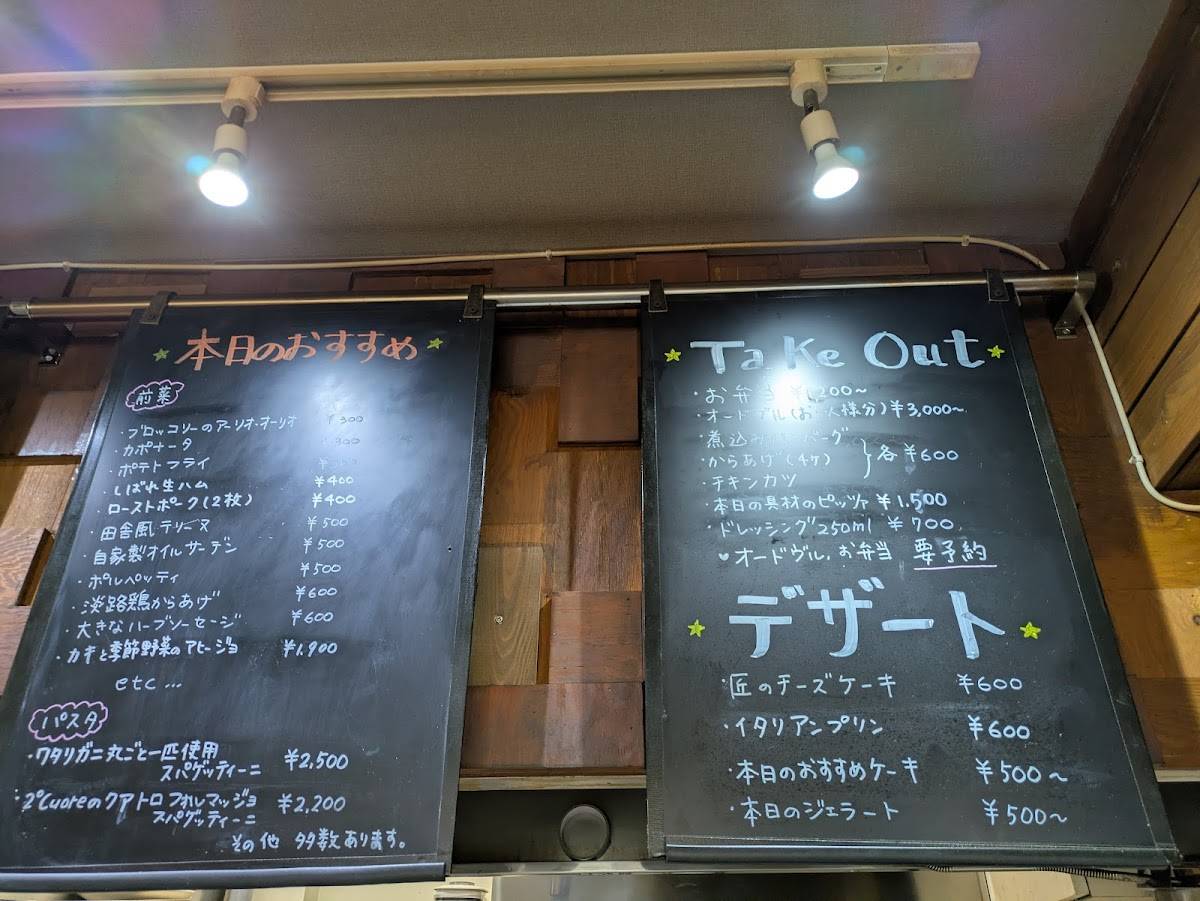 本日のおすすめ
前菜
・ブロッコリーのアーリオ・オーリオ ¥300
・カポナータ ¥300
・ポテトフライ
・しばれ生ハム ¥400
・ローストポーク(2枚) ¥400
・田舎風テリーヌ ¥500
・自家製オイルサーデン ¥500
・ポルペッティ ¥500
・淡路鶏からあげ ¥600
・大きなハーブソーセージ ¥600
・カキと季節野菜のアヒージョ ¥1,900
etc...
パスタ
・ワタリガニ丸ごと一匹使用
スパゲッティーニ ¥2,500
・2°Cuoreのクアトロフォルマッジョ ¥2,200
スパゲッティーニ
その他 多数あります。
Take Out
・お弁当 ¥1,200〜
・オードブル(お一人様分) ¥3,000〜
・煮込みハンバーグ
・からあげ(4ヶ) 各¥600
・チキンカツ
・本日の具材のピッツァ ¥1,500
・ドレッシング250ml ¥700
♥オードヴル、お弁当 要予約
デザート
・匠のチーズケーキ ¥600
・イタリアンプリン ¥600
・本日のおすすめケーキ ¥500〜
・本日のジェラート ¥500〜